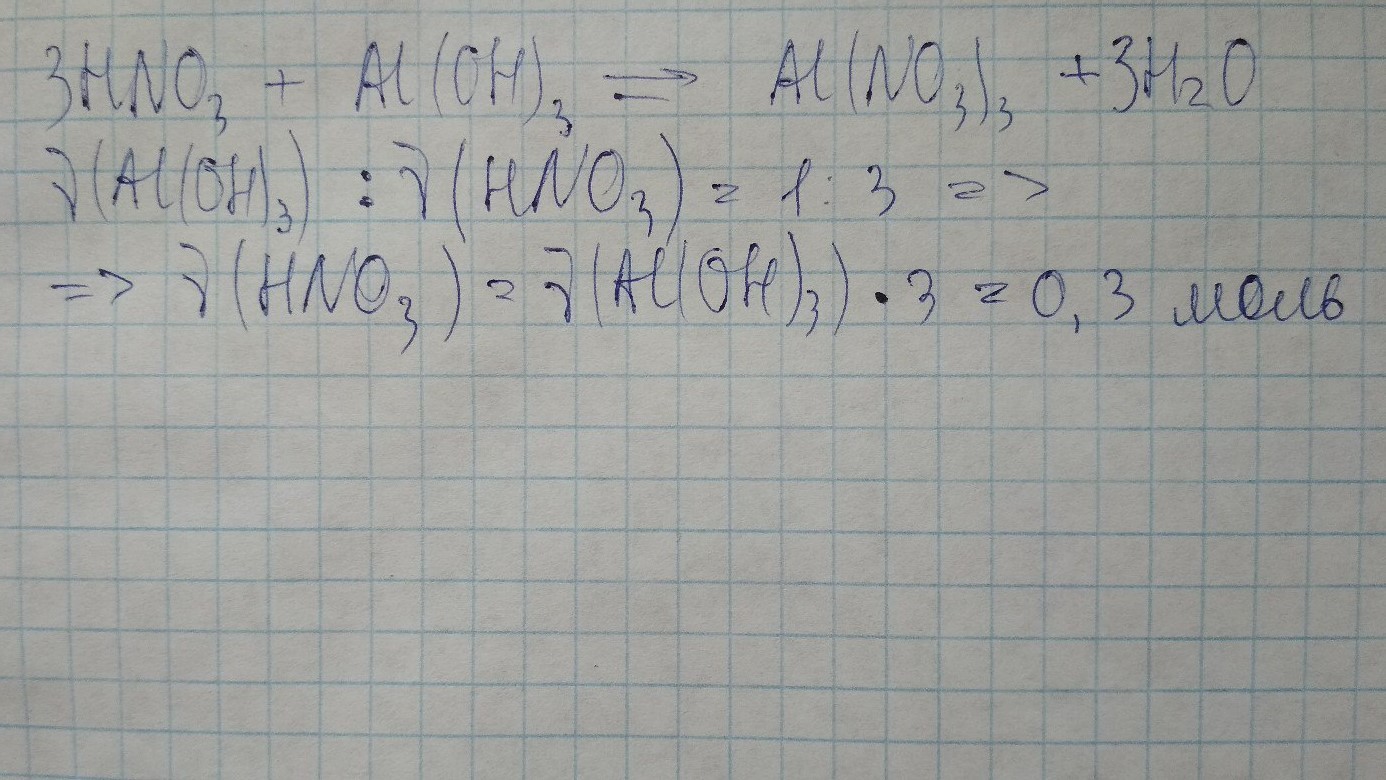 3HNO₃ + Al(OH)₃ ⇒ Al(NO₃)₃ + 3H₂O
ν(Al(OH)₃) : ν(HNO₃) = 1 : 3 =>
=> ν(HNO₃) = ν(Al(OH)₃) · 3 = 0,3 моль